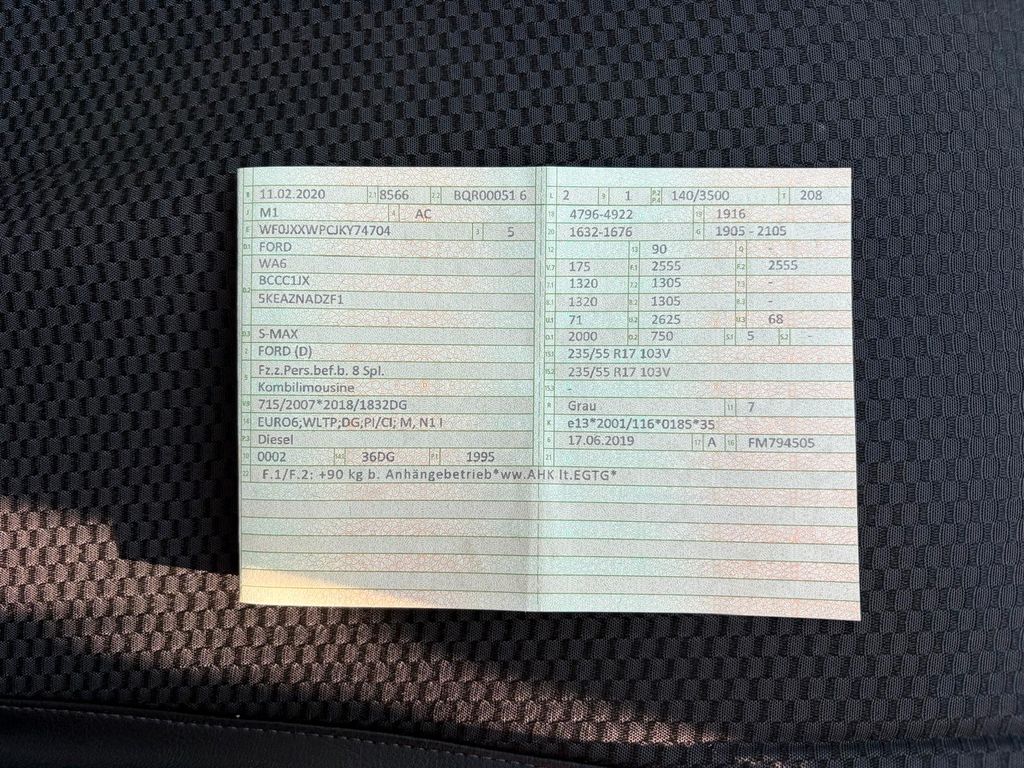 B 11.02.2020 2.1 8566 2.2 BQR00051 6
J M1 4 AC
E WF0JXXWPCJKY74704 3 5
D.1 FORD
WA6
D.2 BCCC1JX
5KEAZNADZF1
D.3 S-MAX
2 FORD (D)
5 Fz.z.Pers.bef.b. 8 Spl.
Kombilimousine
V.9 715/2007*2018/1832DG
14 EURO6;WLTP;DG;PI/CI; M, N1 I
P.3 Diesel
10 0002 14.1 36DG P.1 1995
22 F.1/F.2: +90 kg b. Anhängebetrieb*ww.AHK lt.EGTG*
L 2 9 1 P.2 P.4 140/3500 T 208
18 4796-4922 19 1916
20 1632-1676 G 1905 - 2105
12 13 90 Q -
V.7 175 F.1 2555 F.2 2555
7.1 1320 7.2 1305 7.3 -
8.1 1320 8.2 1305 8.3 -
U.1 71 U.2 2625 U.3 68
O.1 2000 O.2 750 S.1 5 S.2 -
15.1 235/55 R17 103V
15.2 235/55 R17 103V
15.3 -
R Grau 11 7
K e13*2001/116*0185*35
6 17.06.2019 17 A 16 FM794505
21